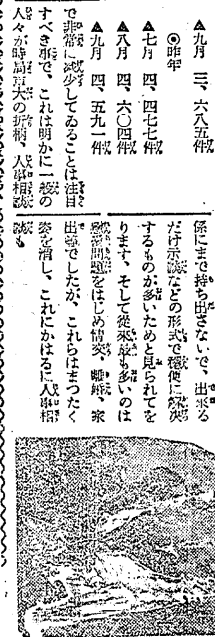 ▲九月 三、六八五件
◉昨年
▲七月 四、四七七件
▲八月 四、六〇四件
▲九月 四、五九一件
で非常に減少してゐることは注目
すべき事で、これは明かに一般の
人々が時局重大の折柄、人事相談
係にまで持ち出さないで、出来る
だけ示談などの形式で穏便に解決
するものが多いためと見られてを
ります、そして従来最も多いのは
問題をはじめ情交、離婚、家
出等でしたが、これらはまつたく
姿を消し、これにかはるに人事相
談も